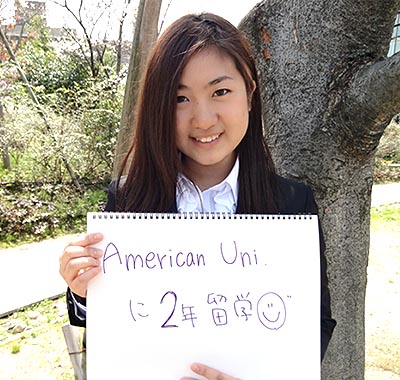 American Uni.
に2年留学☺"